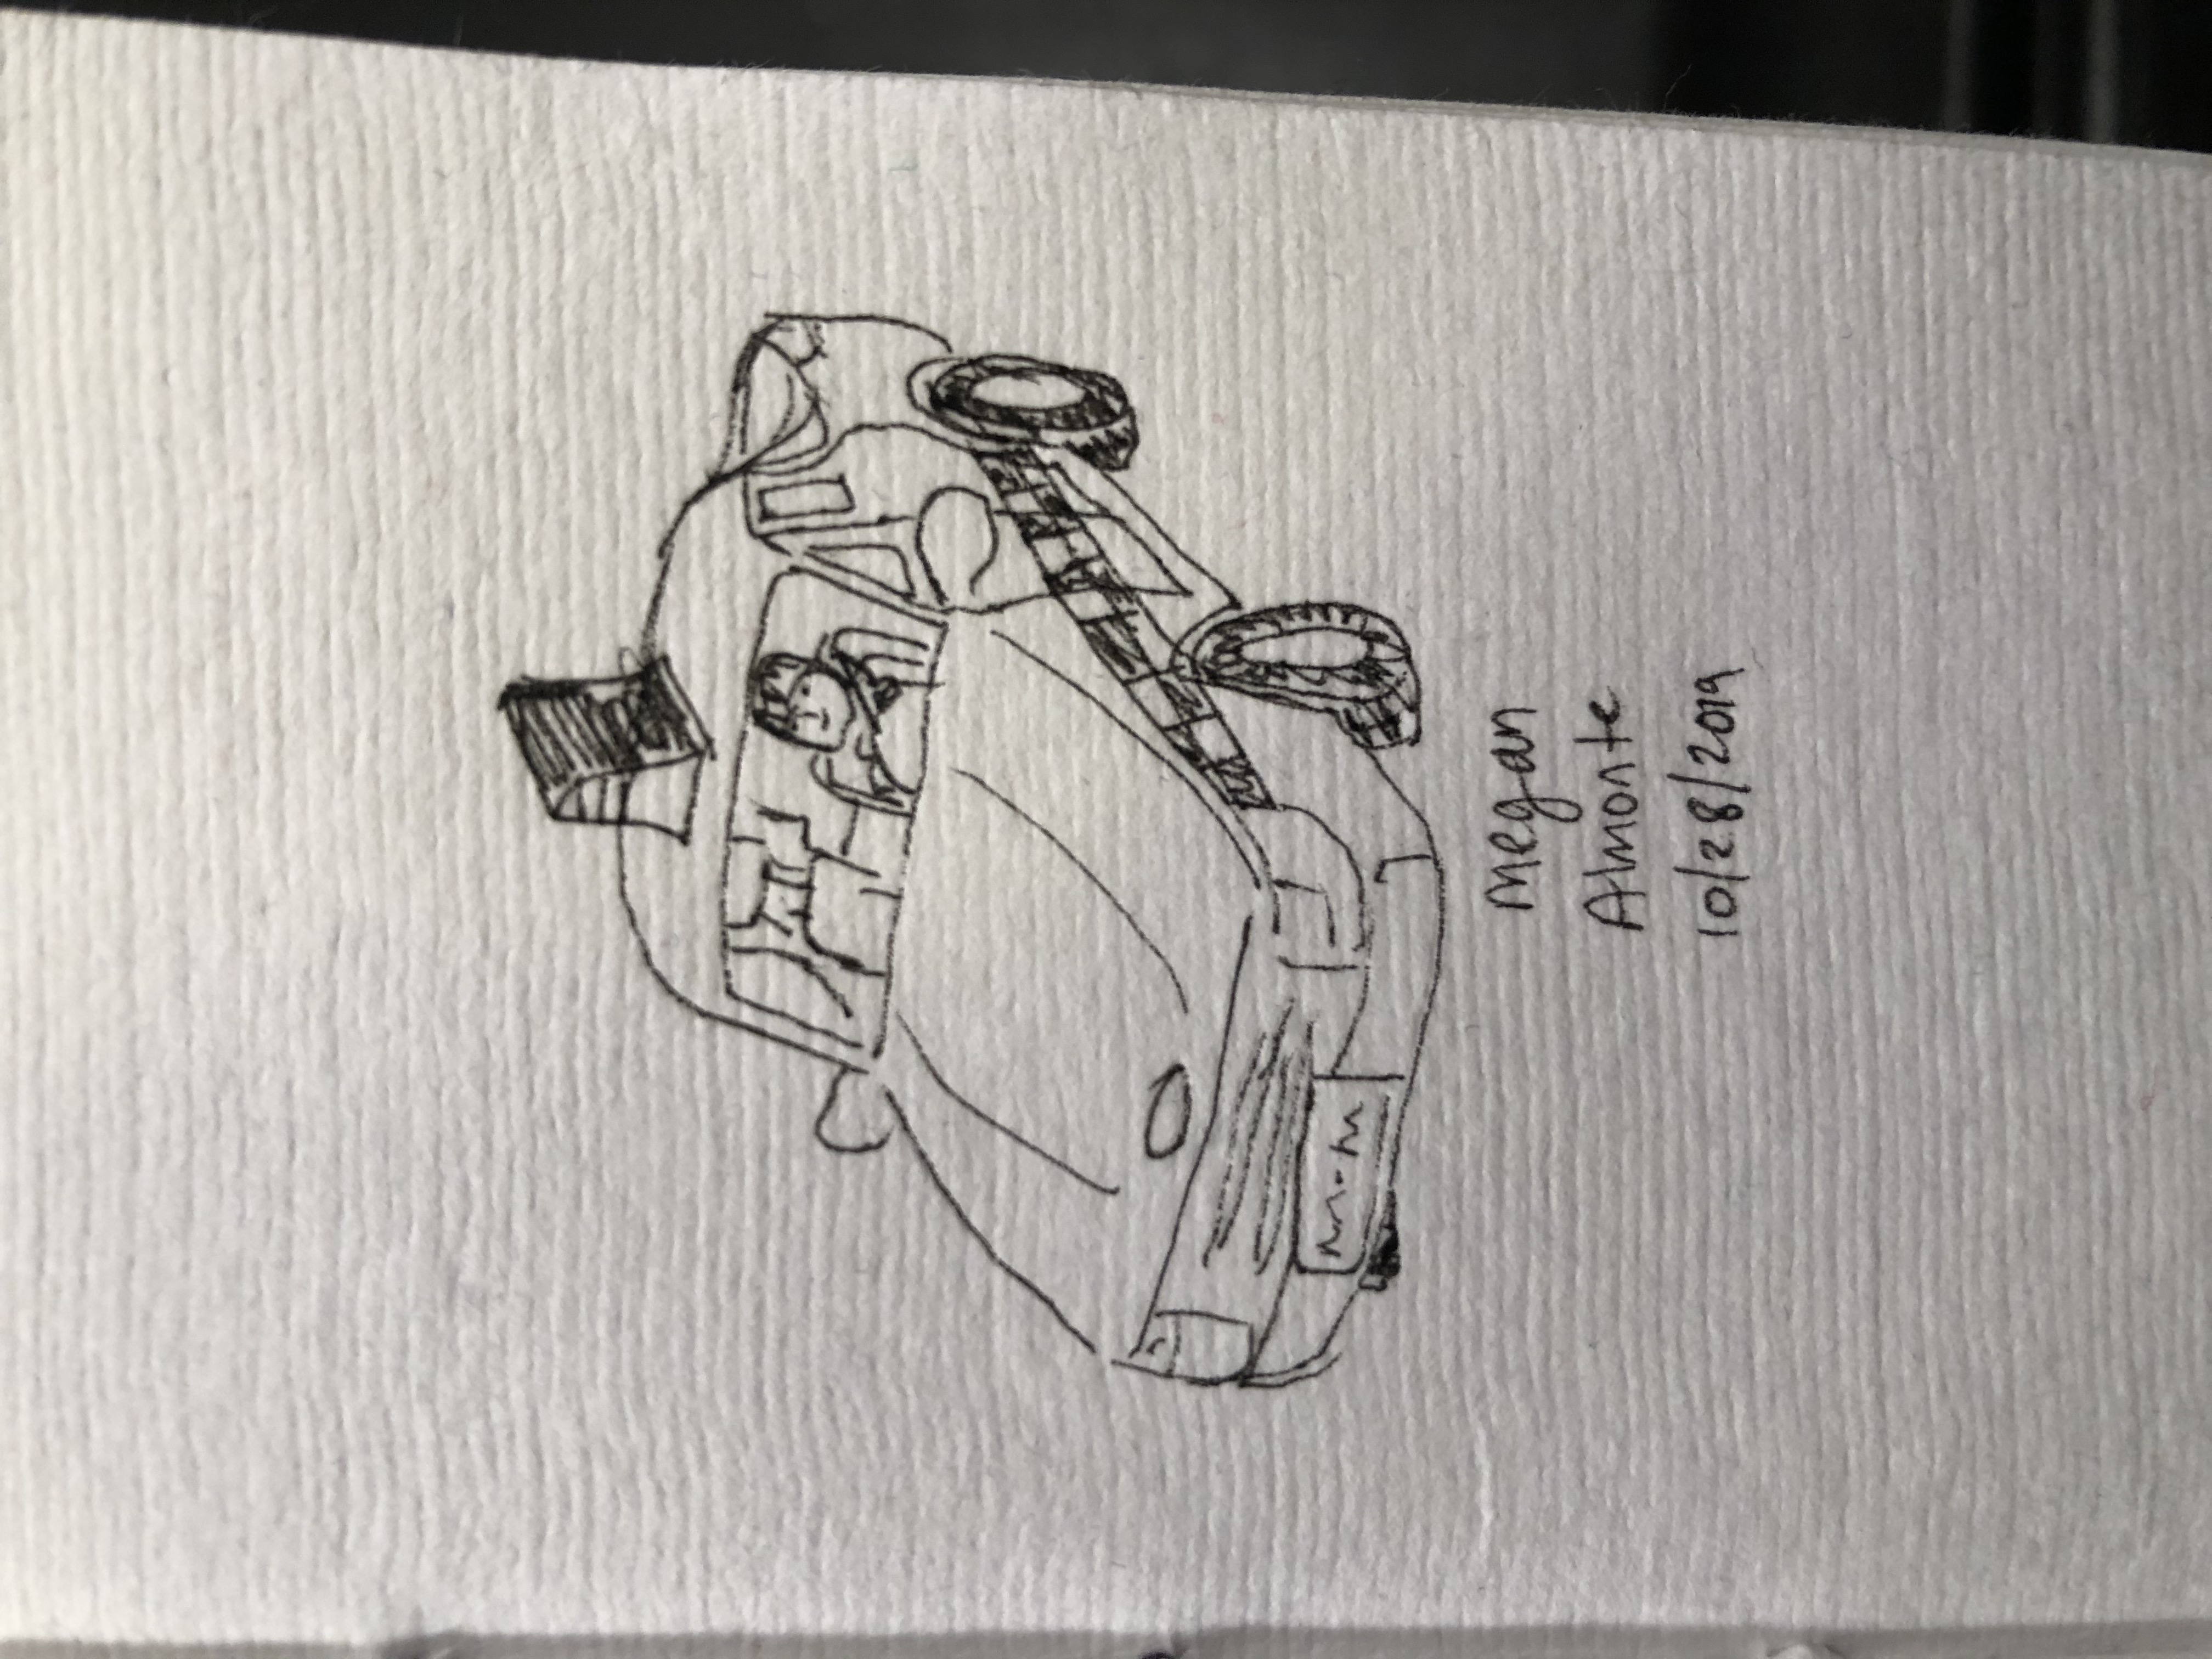 Megan
Almonte
10/28/2019